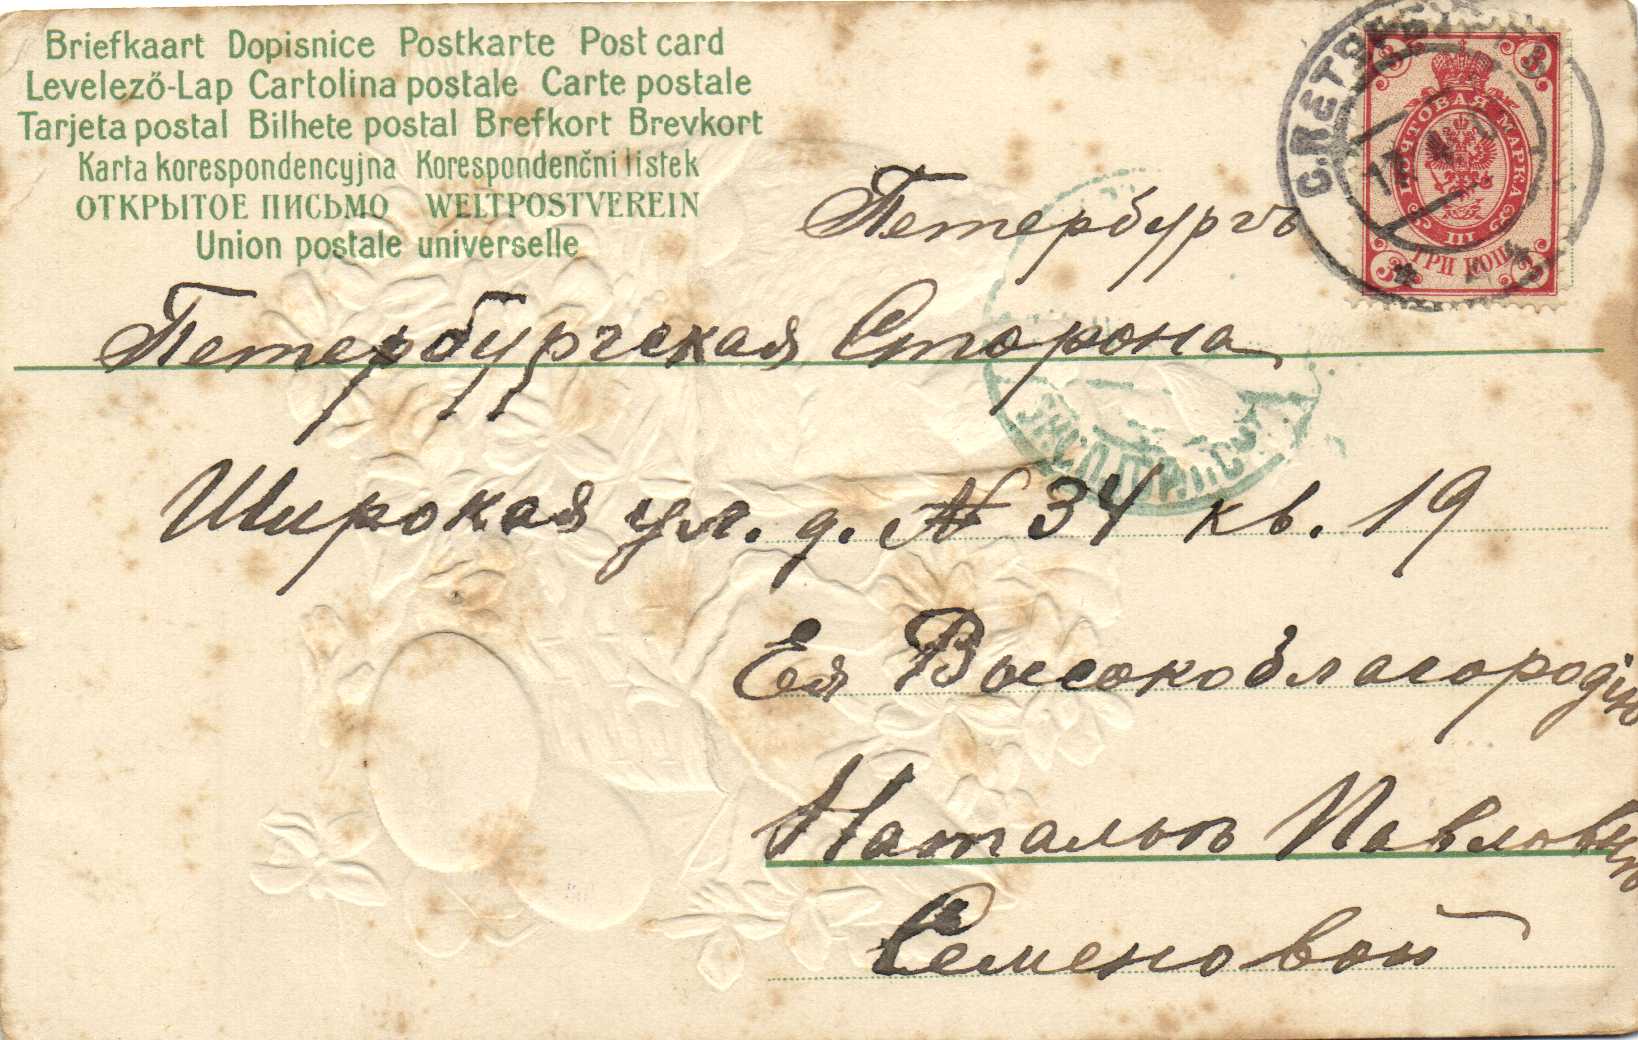 Briefkaart Dopisnice Postkarte Post card
Levelező-Lap Cartolina postale Carte postale
Tarjeta postal Bilhete postal Brefkort Brevkort
Karta korespondencyjna Korespondenčni listek
ОТКРЫТОЕ ПИСЬМО WELTPOSTVEREIN
Union postale universelle
С.ПЕТЕРБУРГ
17
3 3
ПОЧТОВАЯ МАРКА
ТРИ КОП.
3 3
Петербургъ
Петербургская Сторона
Широкая ул. д. № 34 кв. 19
Ея Высокоблагородію
Натальѣ Павловнѣ
Семеновой